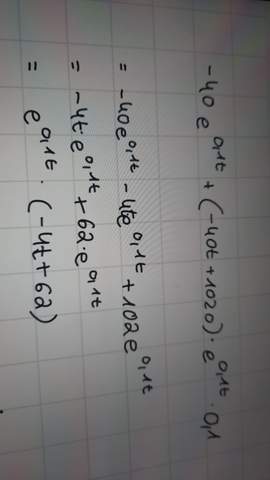 -40 e^0,1t + (-40t+1020) · e^0,1t · 0,1
= -40e^0,1t - 4te^0,1t + 102e^0,1t
= -4t·e^0,1t + 62·e^0,1t
= e^0,1t · (-4t+62)